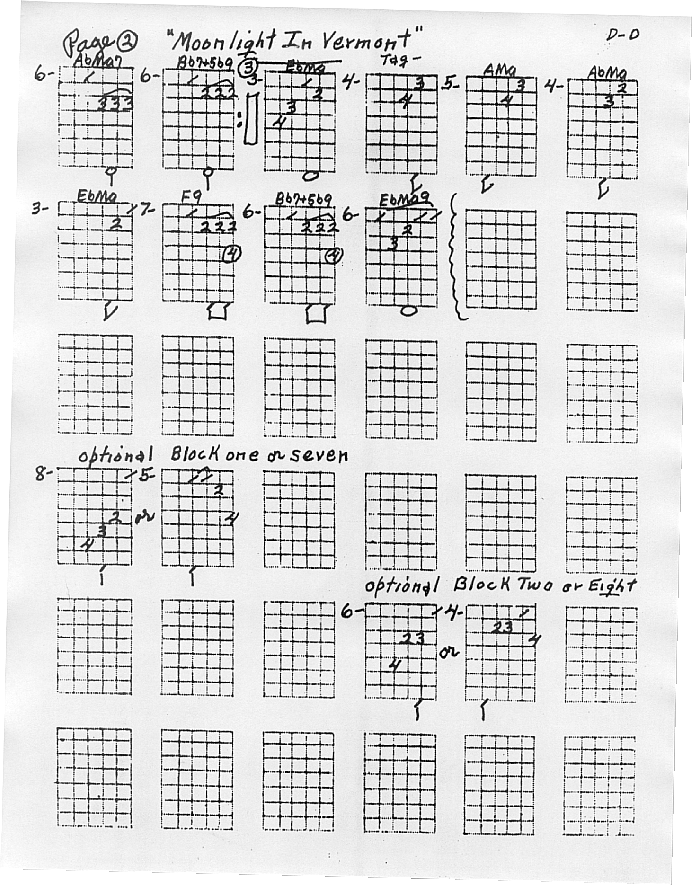 Page 2 "Moonlight In Vermont" D-D
AbMa7 Bb7+5b9 3 EbMa Tag- AMa AbMa
6- 6- 3- 4- 5- 4-
333 222 2 3 3 2
3 4 4 3
4
EbMa F9 Bb7+5b9 EbMa9
3- 7- 6- 6-
2 222 222 2
4 4 3
optional Block one or seven
8- 5-
2
2 or 4
3
4
optional Block Two or Eight
6- 4-
23 23
or 4
4